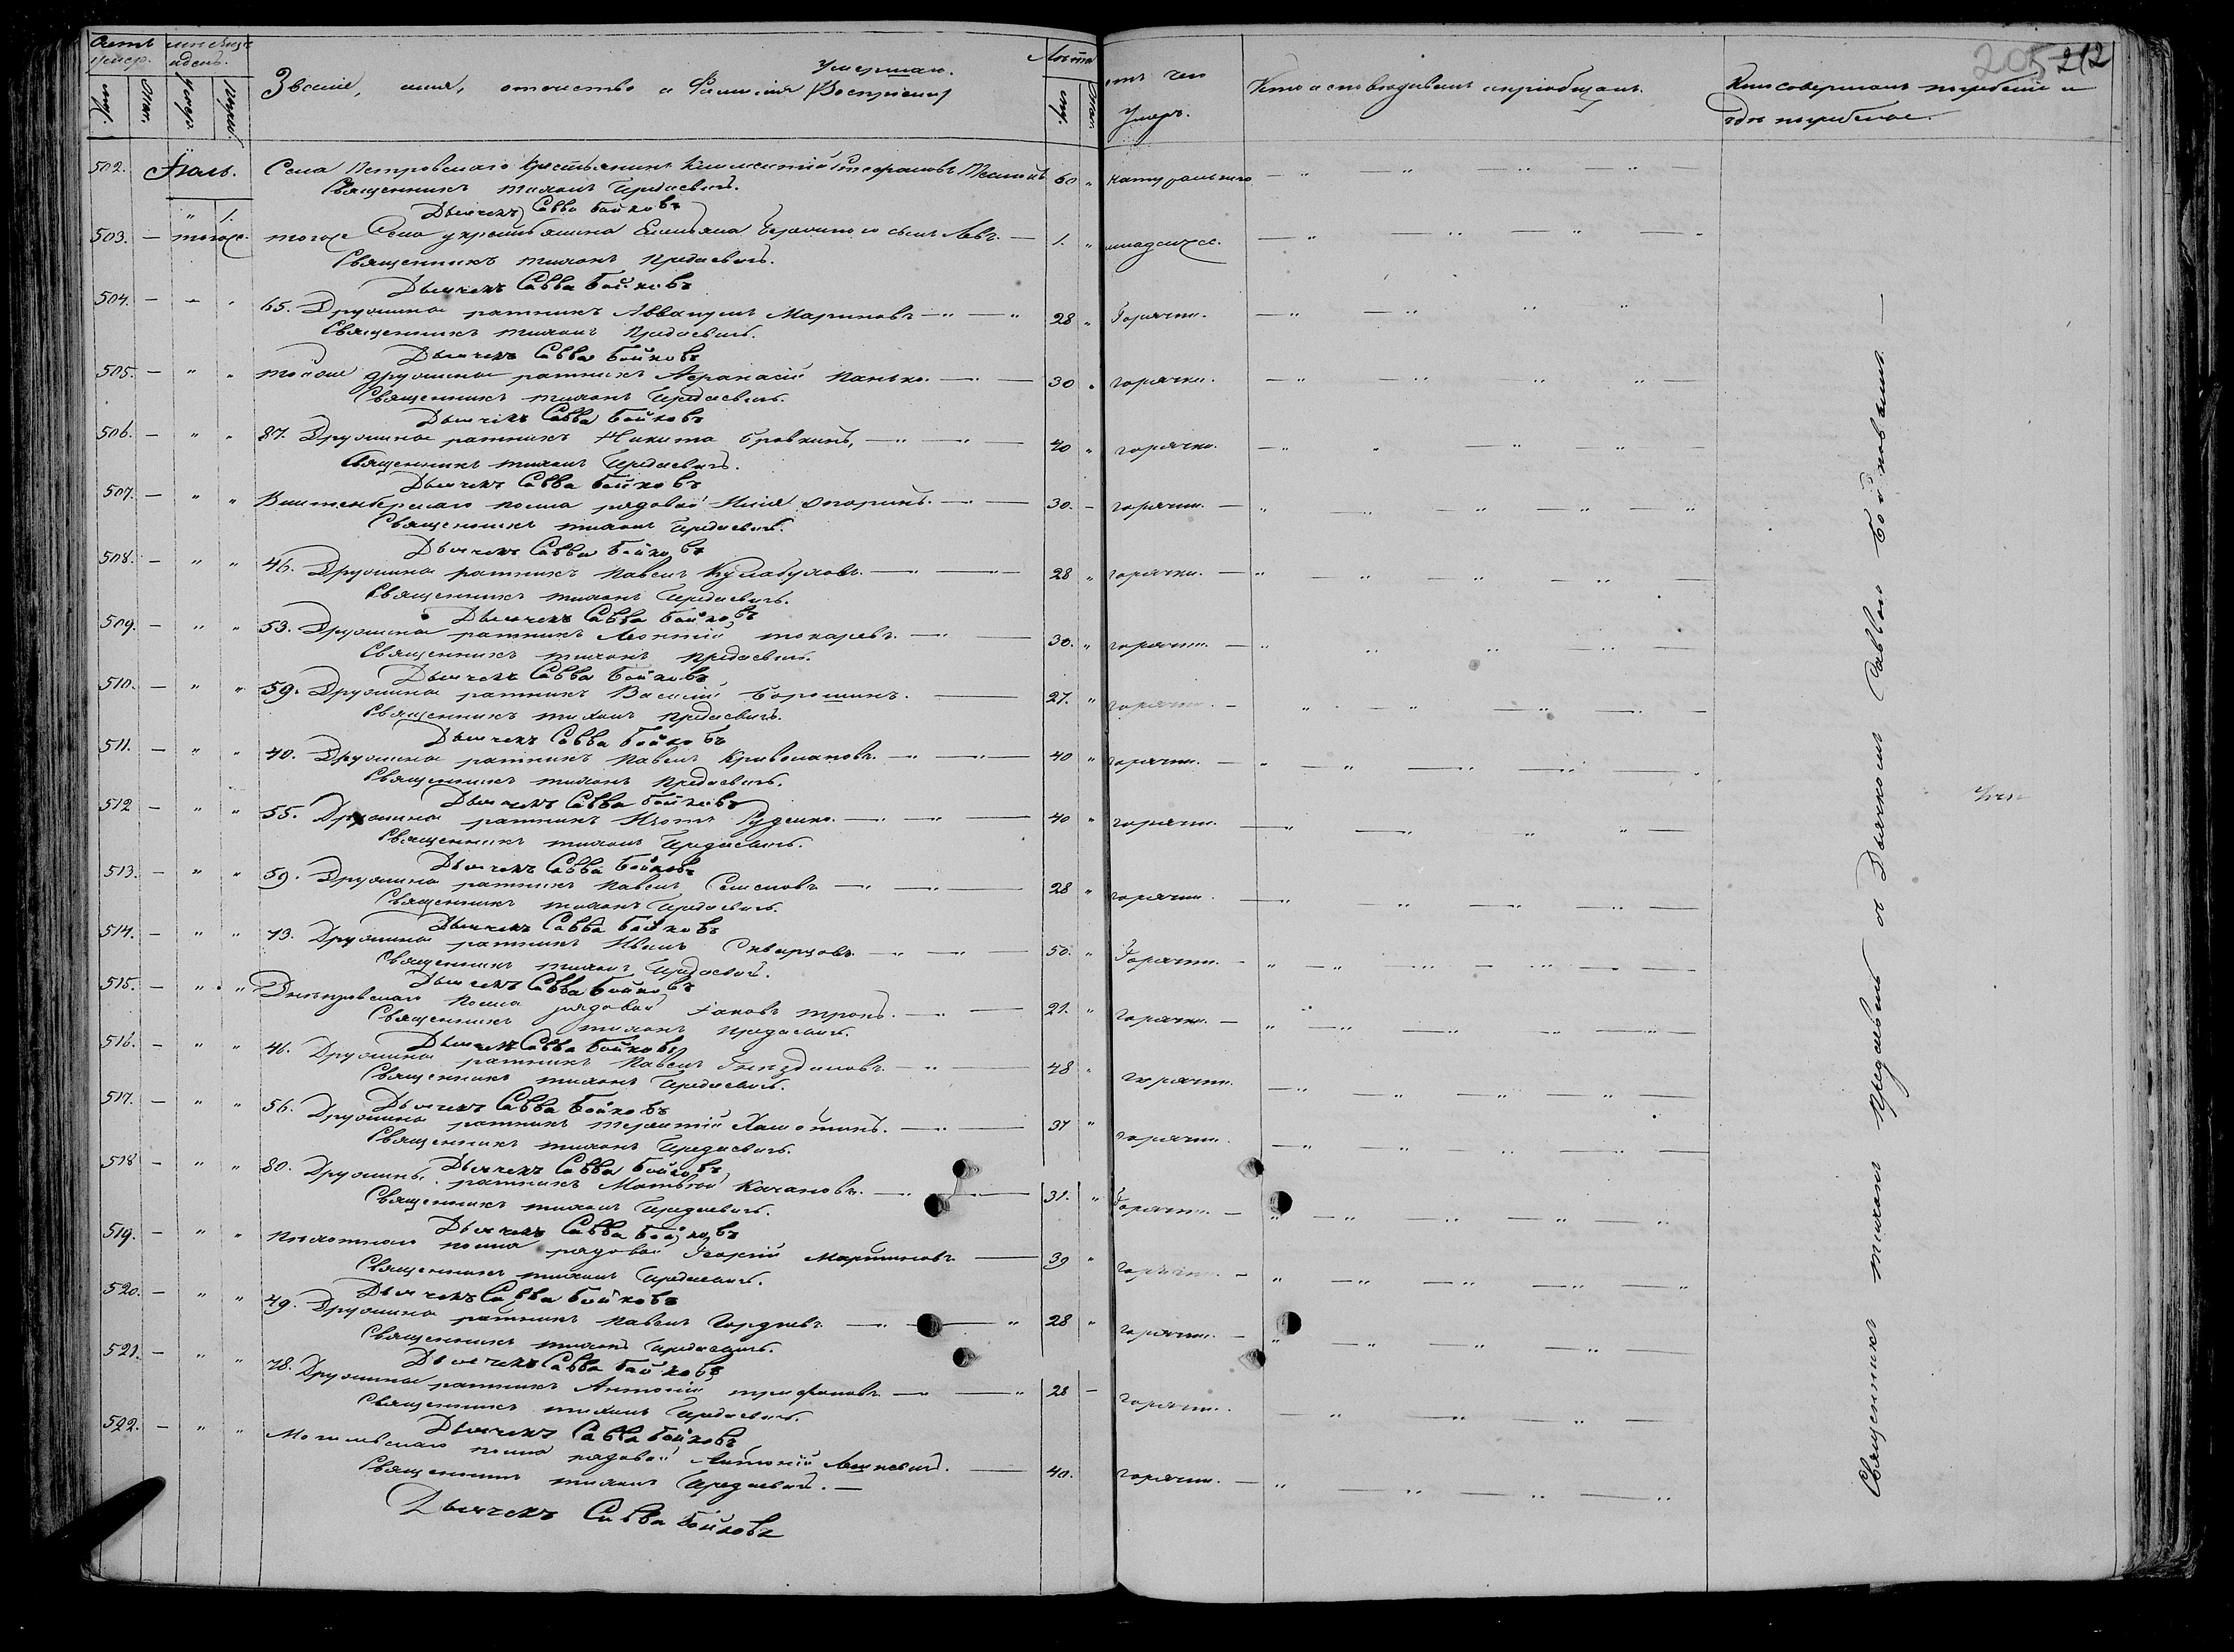 205 212
Счетъ умер. мѣсяцъ и день.
муж. жен.
Званіе, имя, отчество и Фамилія Умершаго.
Лѣта
муж. жен.
отъ чего Умеръ.
Кто исповѣдывалъ и пріобщалъ.
Кто совершалъ погребеніе и гдѣ погребены.
502. Іюль. " 1. Села Петровскаго крестьянинъ Климентій Стефановъ 60 " натуральною
Священникъ Тихонъ Предаевичъ.
Дьячекъ Савва Бойковъ
503. — тогоже. тогоже Села у крестьянина сынъ Левъ. — 1. " младенческ.
Священникъ Тихонъ Предаевичъ.
Дьячекъ Савва Бойковъ
504. — 65. Дружины ратникъ Аввакумъ Мариновъ 28 " Горячки.
Священникъ Тихонъ Предаевичъ.
Дьячекъ Савва Бойковъ
505. — " " тойже дружины ратникъ Афанасій Панько. 30 " горячки.
Священникъ Тихонъ Предаевичъ.
Дьячекъ Савва Бойковъ
506. — " " 87. Дружины ратникъ Никита Бровкинъ, 40 " горячки.
Священникъ Тихонъ Предаевичъ.
Дьячекъ Савва Бойковъ
507. — " " полка рядовой Илія 30. — горячки.
Священникъ Тихонъ Предаевичъ.
Дьячекъ Савва Бойковъ
508. — " " 46. Дружины ратникъ Павелъ Кулабуховъ. 28 " горячки.
Священникъ Тихонъ Предаевичъ.
Дьячекъ Савва Бойковъ
509. — " " 53. Дружины ратникъ Леонтій Токаревъ. 30. " горячки.
Священникъ Тихонъ Предаевичъ.
Дьячекъ Савва Бойковъ
510. — " " 59. Дружины ратникъ Василій Борошинъ. 27. " горячки.
Священникъ Тихонъ Предаевичъ.
Дьячекъ Савва Бойковъ
511. — " " 40. Дружины ратникъ Павелъ 40 " горячки.
Священникъ Тихонъ Предаевичъ.
Дьячекъ Савва Бойковъ
512 — " " 55. Дружины ратникъ Изотъ Руденко. 40 " горячки.
Священникъ Тихонъ Предаевичъ.
Дьячекъ Савва Бойковъ
513. — " " 59. Дружины ратникъ Павелъ Семеновъ 28 " горячки.
Священникъ Тихонъ Предаевичъ.
Дьячекъ Савва Бойковъ
514. — " " 73. Дружины ратникъ Иванъ Скварцовъ. 50. " Горячки.
Священникъ Тихонъ Предаевичъ.
Дьячекъ Савва Бойковъ
515. — " " Днѣпровскаго полка рядовой Іаковъ 21. " горячки.
Священникъ Тихонъ Предаевичъ.
Дьячекъ Савва Бойковъ
516. — " " 46. Дружины ратникъ Павелъ Гнездиловъ. 48 " горячки.
Священникъ Тихонъ Предаевичъ.
Дьячекъ Савва Бойковъ
517. — " " 56. Дружины ратникъ Терентій 37 " горячки.
Священникъ Тихонъ Предаевичъ.
Дьячекъ Савва Бойковъ
518 — " " 80. Дружины ратникъ Матвѣй Качановъ. 31. " Горячки.
Священникъ Тихонъ Предаевичъ.
Дьячекъ Савва Бойковъ
519. — " " Пѣхотнаго полка рядовой Георгій Мартиновъ 39 " горячки.
Священникъ Тихонъ Предаевичъ.
Дьячекъ Савва Бойковъ
520. — " " 49. Дружины ратникъ Павелъ Гордѣевъ 28 " горячки.
Священникъ Тихонъ Предаевичъ.
Дьячекъ Савва Бойковъ
521. — " " 78. Дружины ратникъ Антоній Трифоновъ 28 — горячки.
Священникъ Тихонъ Предаевичъ.
Дьячекъ Савва Бойковъ
522. — " " Могилевскаго полка рядовой Антоній 40. горячки.
Священникъ Тихонъ Предаевичъ. —
Дьячекъ Савва Бойковъ
Священникъ Тихонъ Предаевичъ съ Дьячкомъ Саввою Бойковымъ —